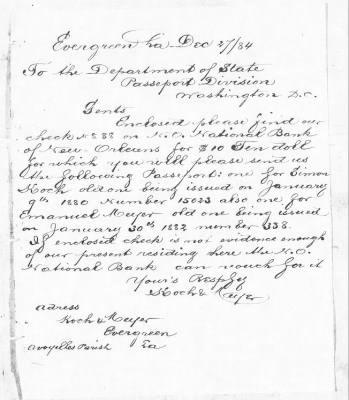 Evergreen La Dec 27/84
To the Department of State
Passport Division
Washington D.C.
Gents
Enclosed please find our
check No 88 on N.O. National Bank
of New-Orleans for $10 Ten doll
for which you will please send us
the following Passport: one for Simon
Koch old one being issued on January
9th 1880 Number 15033 also one for
Emanuel Meyer old one being issued
on January 30th 1882 number 338.
If enclosed check is not evidence enough
of our present residing here the N.O.
National Bank can vouch for it
Your's Respfy
Koch & Meyer
adress
Koch & Meyer
Evergreen
avoyelles Parish La